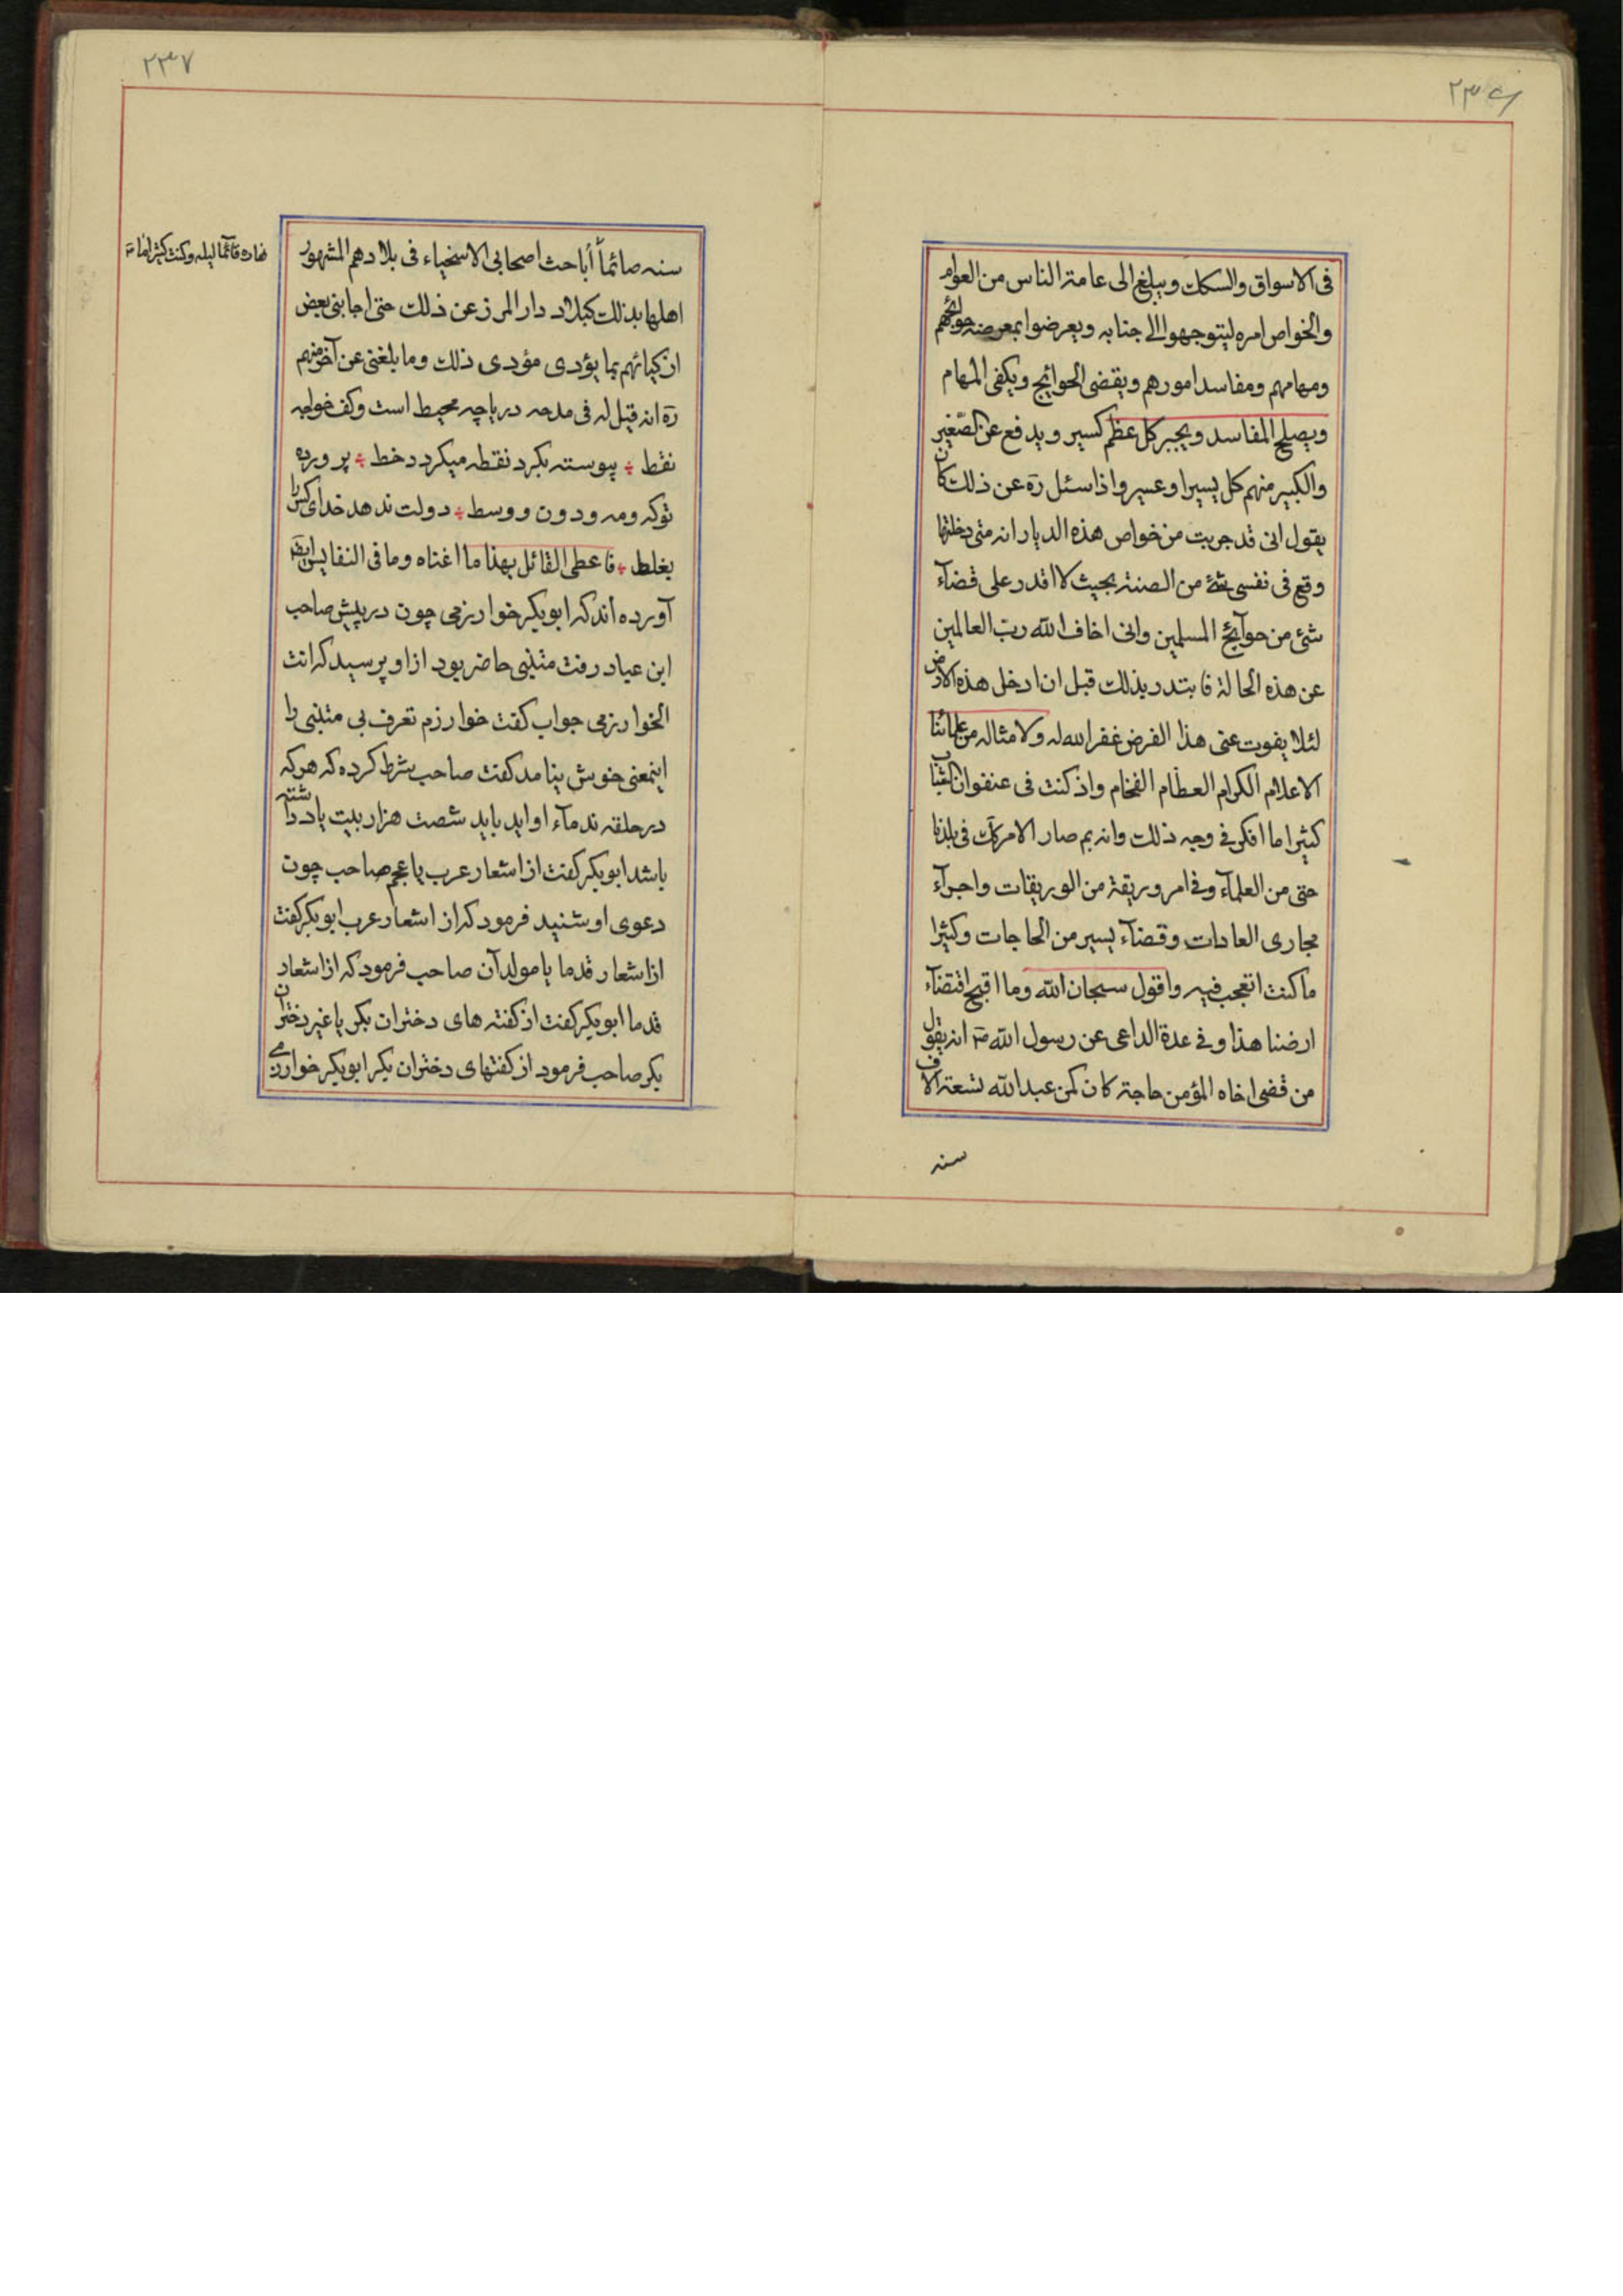 ٢٣٦
فى الاسواق والسكك ويبلغ الى عامة الناس من العوام
والخواص امره ليتوجهوا الى جنابه ويعرضوا بمعرضه حوائجهم
ومهامهم ومفاسد امورهم ويقضى الحوائج ويكفى المهام
ويصلح المفاسد ويجبر كل عظم كسير ويدفع عن الصّغير
والكبير منهم كل يسير او عسير واذا سئل رَه عن ذلك كان
يقول انى قد جربت من خواص هذه الديار انه متى دخلتها
وقع فى نفسى شئ من الضنة بحيث لا اقدر على قضآء
شئ من حوآئج المسلمين وانى اخاف الله ربّ العالمين
عن هذه الحالة فابتدر بذلك قبل ان ادخل هذه الارض
لئلا يفوت عنى هذا الفرض غفر الله له ولامثاله من علمائنا
الاعلام الكرام العظام الفخام واذ كنت فى عنفوان الشباب
كثيرا ما افكر فى وجه ذلك وانه بم صار الامر كك فى بلدنا
حتى من العلمآء وفى امر وريقة من الوريقات واجرآء
مجارى العادات وقضآء يسير من الحاجات وكثيرا
ما كنت اتعجب فيه واقول سبحان الله وما اقبح اقتضآء
ارضنا هذا وفى عدة الداعى عن رسول الله صَ انه يقول
من قضى اخاه المؤمن حاجة كان كمن عبد الله تسعة الاف
سنه
٢٣٧
سنه صائماً اُباحث اصحابى الاسخياء فى بلادهم المشهور
نهاره قآئما ليله وكنت كثيرا ما
اهلها بذلك كبلاد دار المرز عن ذلك حتى اجابنى بعض
ازكيائهم بما يؤدى مؤدى ذلك وما بلغنى عن آخر منهم
رَه انه قيل له فى مدحه درياچه محيط است وكف خواجه
نقط ÷ پيوسته بگرد نقطه ميگردد خط ÷ پرورده
تو كه ومه ودون ووسط ÷ دولت ندهد خداى كس را
بغلط ÷ فاعطى القائل بهذا ما اغناه وما فى النفايس
آورده اند كه ابوبكر خوارزمى چون در پيش صاحب
ابن عباد رفت متنبى حاضر بود از او پرسيد كه انت
الخوارزمى جواب گفت خوارزم تعرف بى متنبى را
اينمعنى خوش نيامد گفت صاحب شرط كرده كه هركه
در حلقه ندمآء او ايد بايد شصت هزار بيت ياد داشته
باشد ابوبكر گفت از اشعار عرب يا عجم صاحب چون
دعوى او شنيد فرمود كه از اشعار عرب ابوبكر گفت
از اشعار قدما يا مولدآن صاحب فرمود كه از اشعار
قدما ابوبكر گفت از گفته هاى دختران بكر يا غير دختران
بكر صاحب فرمود از گفتهاى دختران بكر ابوبكر خوارزمى